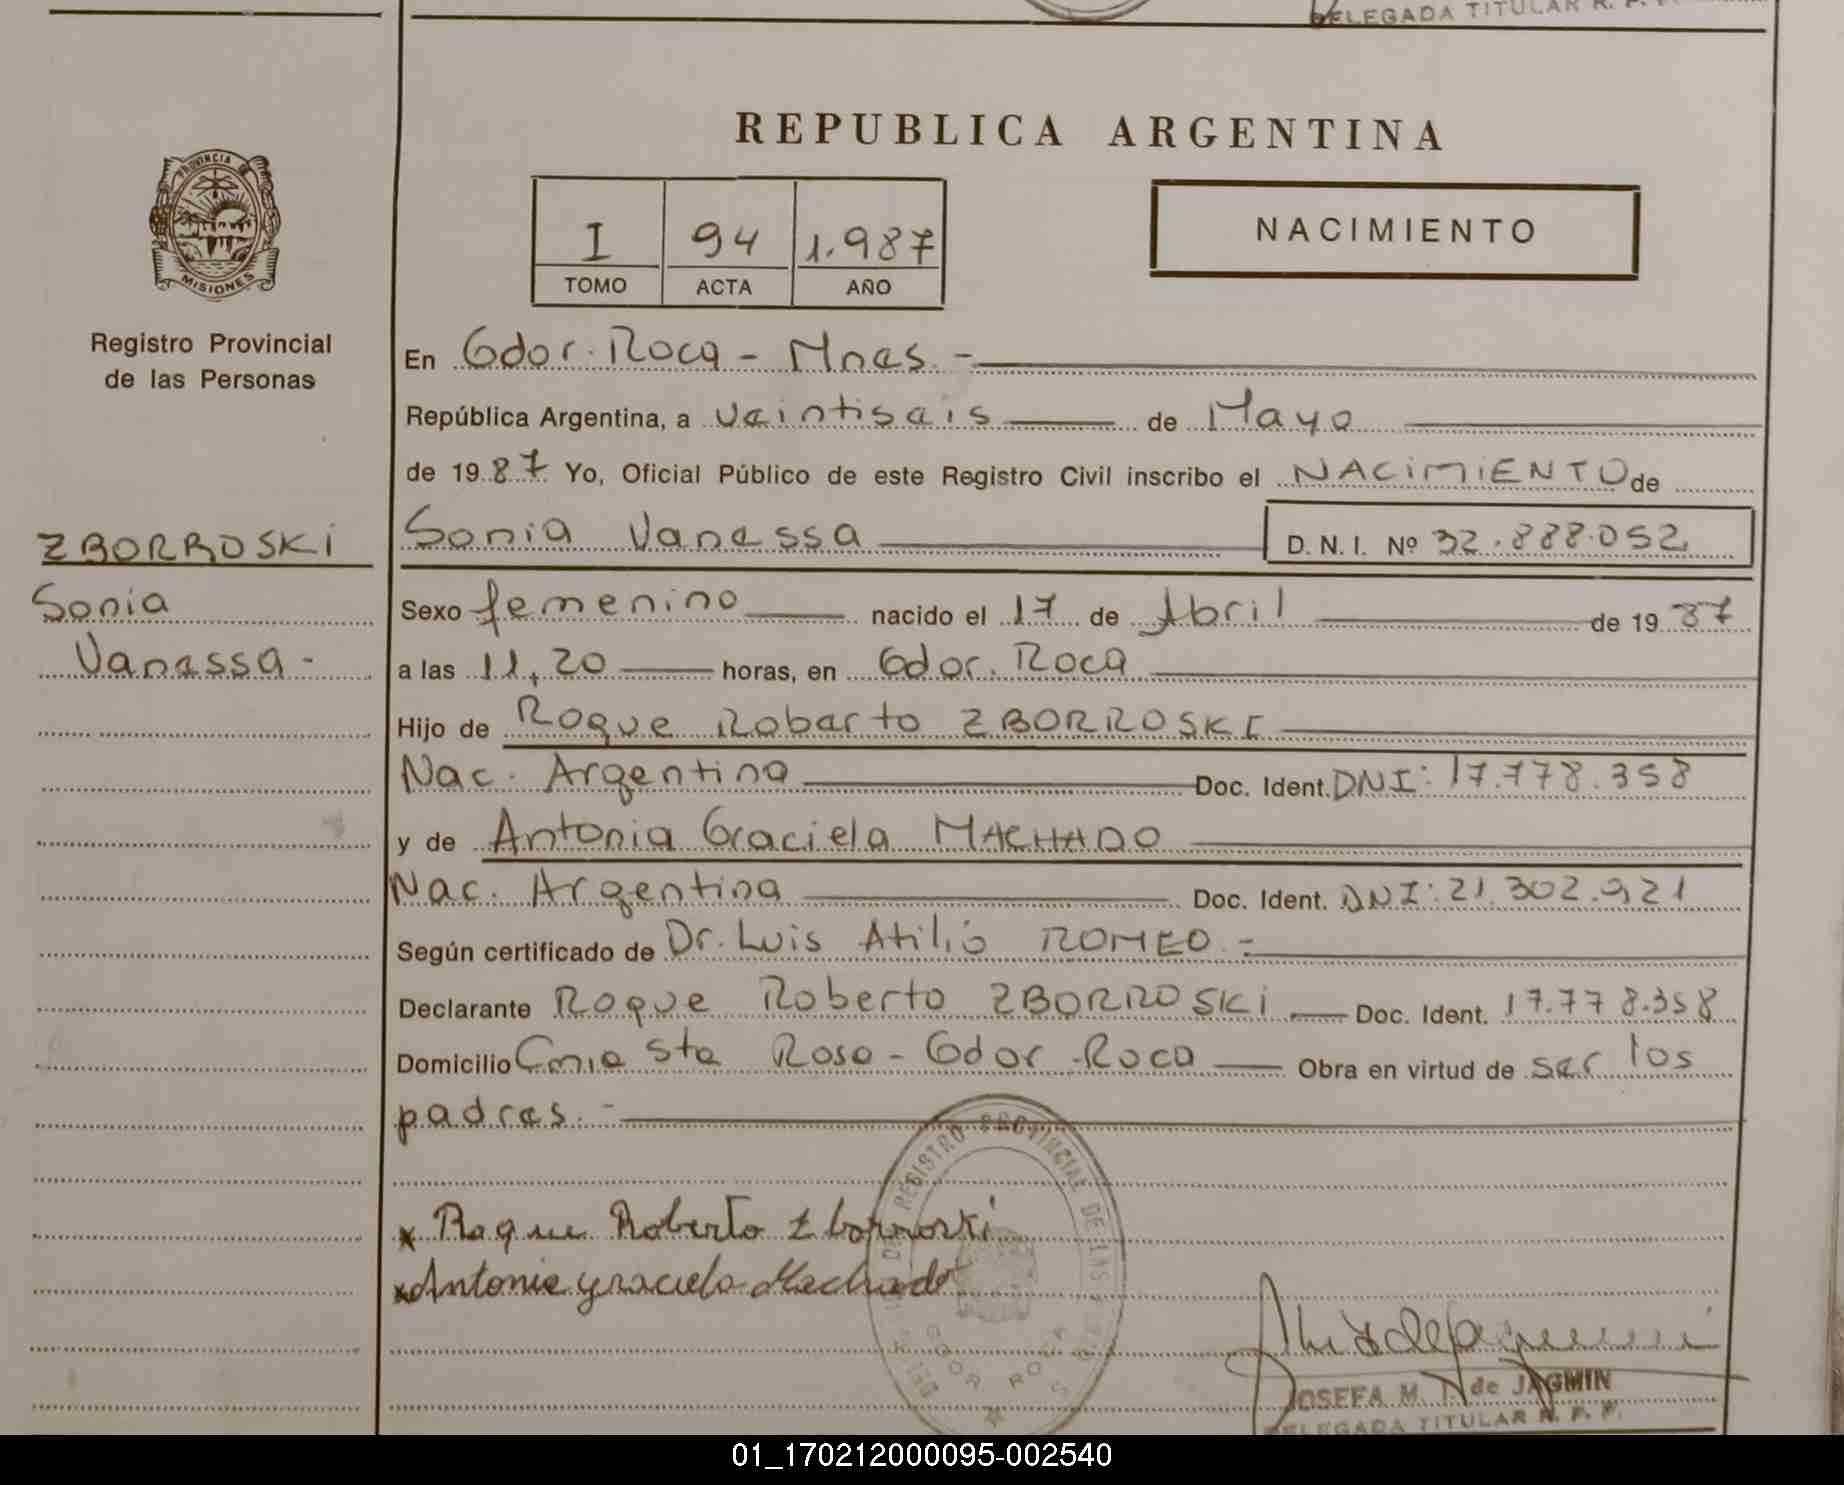 DELEGADA TITULAR R. P. P.
REPUBLICA ARGENTINA
PROVINCIA DE
MISIONES
Registro Provincial
de las Personas
I 94 1.987
TOMO ACTA AÑO
NACIMIENTO
En Gdor. Roca - Mnes. -
República Argentina, a veintiseis de Mayo
de 1987 Yo, Oficial Público de este Registro Civil inscribo el NACIMIENTO de
ZBORROSKI
Sonia
Vanessa -
Sonia Vanessa D. N. I. Nº 32.888.052
Sexo femenino nacido el 17 de Abril de 1987
a las 11,20 horas, en Gdor. Roca
Hijo de Roque Roberto ZBORROSKI
Nac. Argentina Doc. Ident. DNI: 17.778.358
y de Antonia Graciela MACHADO
Nac. Argentina Doc. Ident. DNI: 21.302.921
Según certificado de Dr. Luis Atilio ROMEO. -
Declarante Roque Roberto ZBORROSKI Doc. Ident. 17.778.358
Domicilio Cnia Sta Rosa - Gdor. Roca Obra en virtud de ser los
padres. -
x Roque Roberto Zborroski
x Antonia graciela Machado
REGISTRO PROVINCIAL DE LAS
GDOR ROCA
JOSEFA M. de JAGMIN
DELEGADA TITULAR R. P. P.
01_170212000095-002540